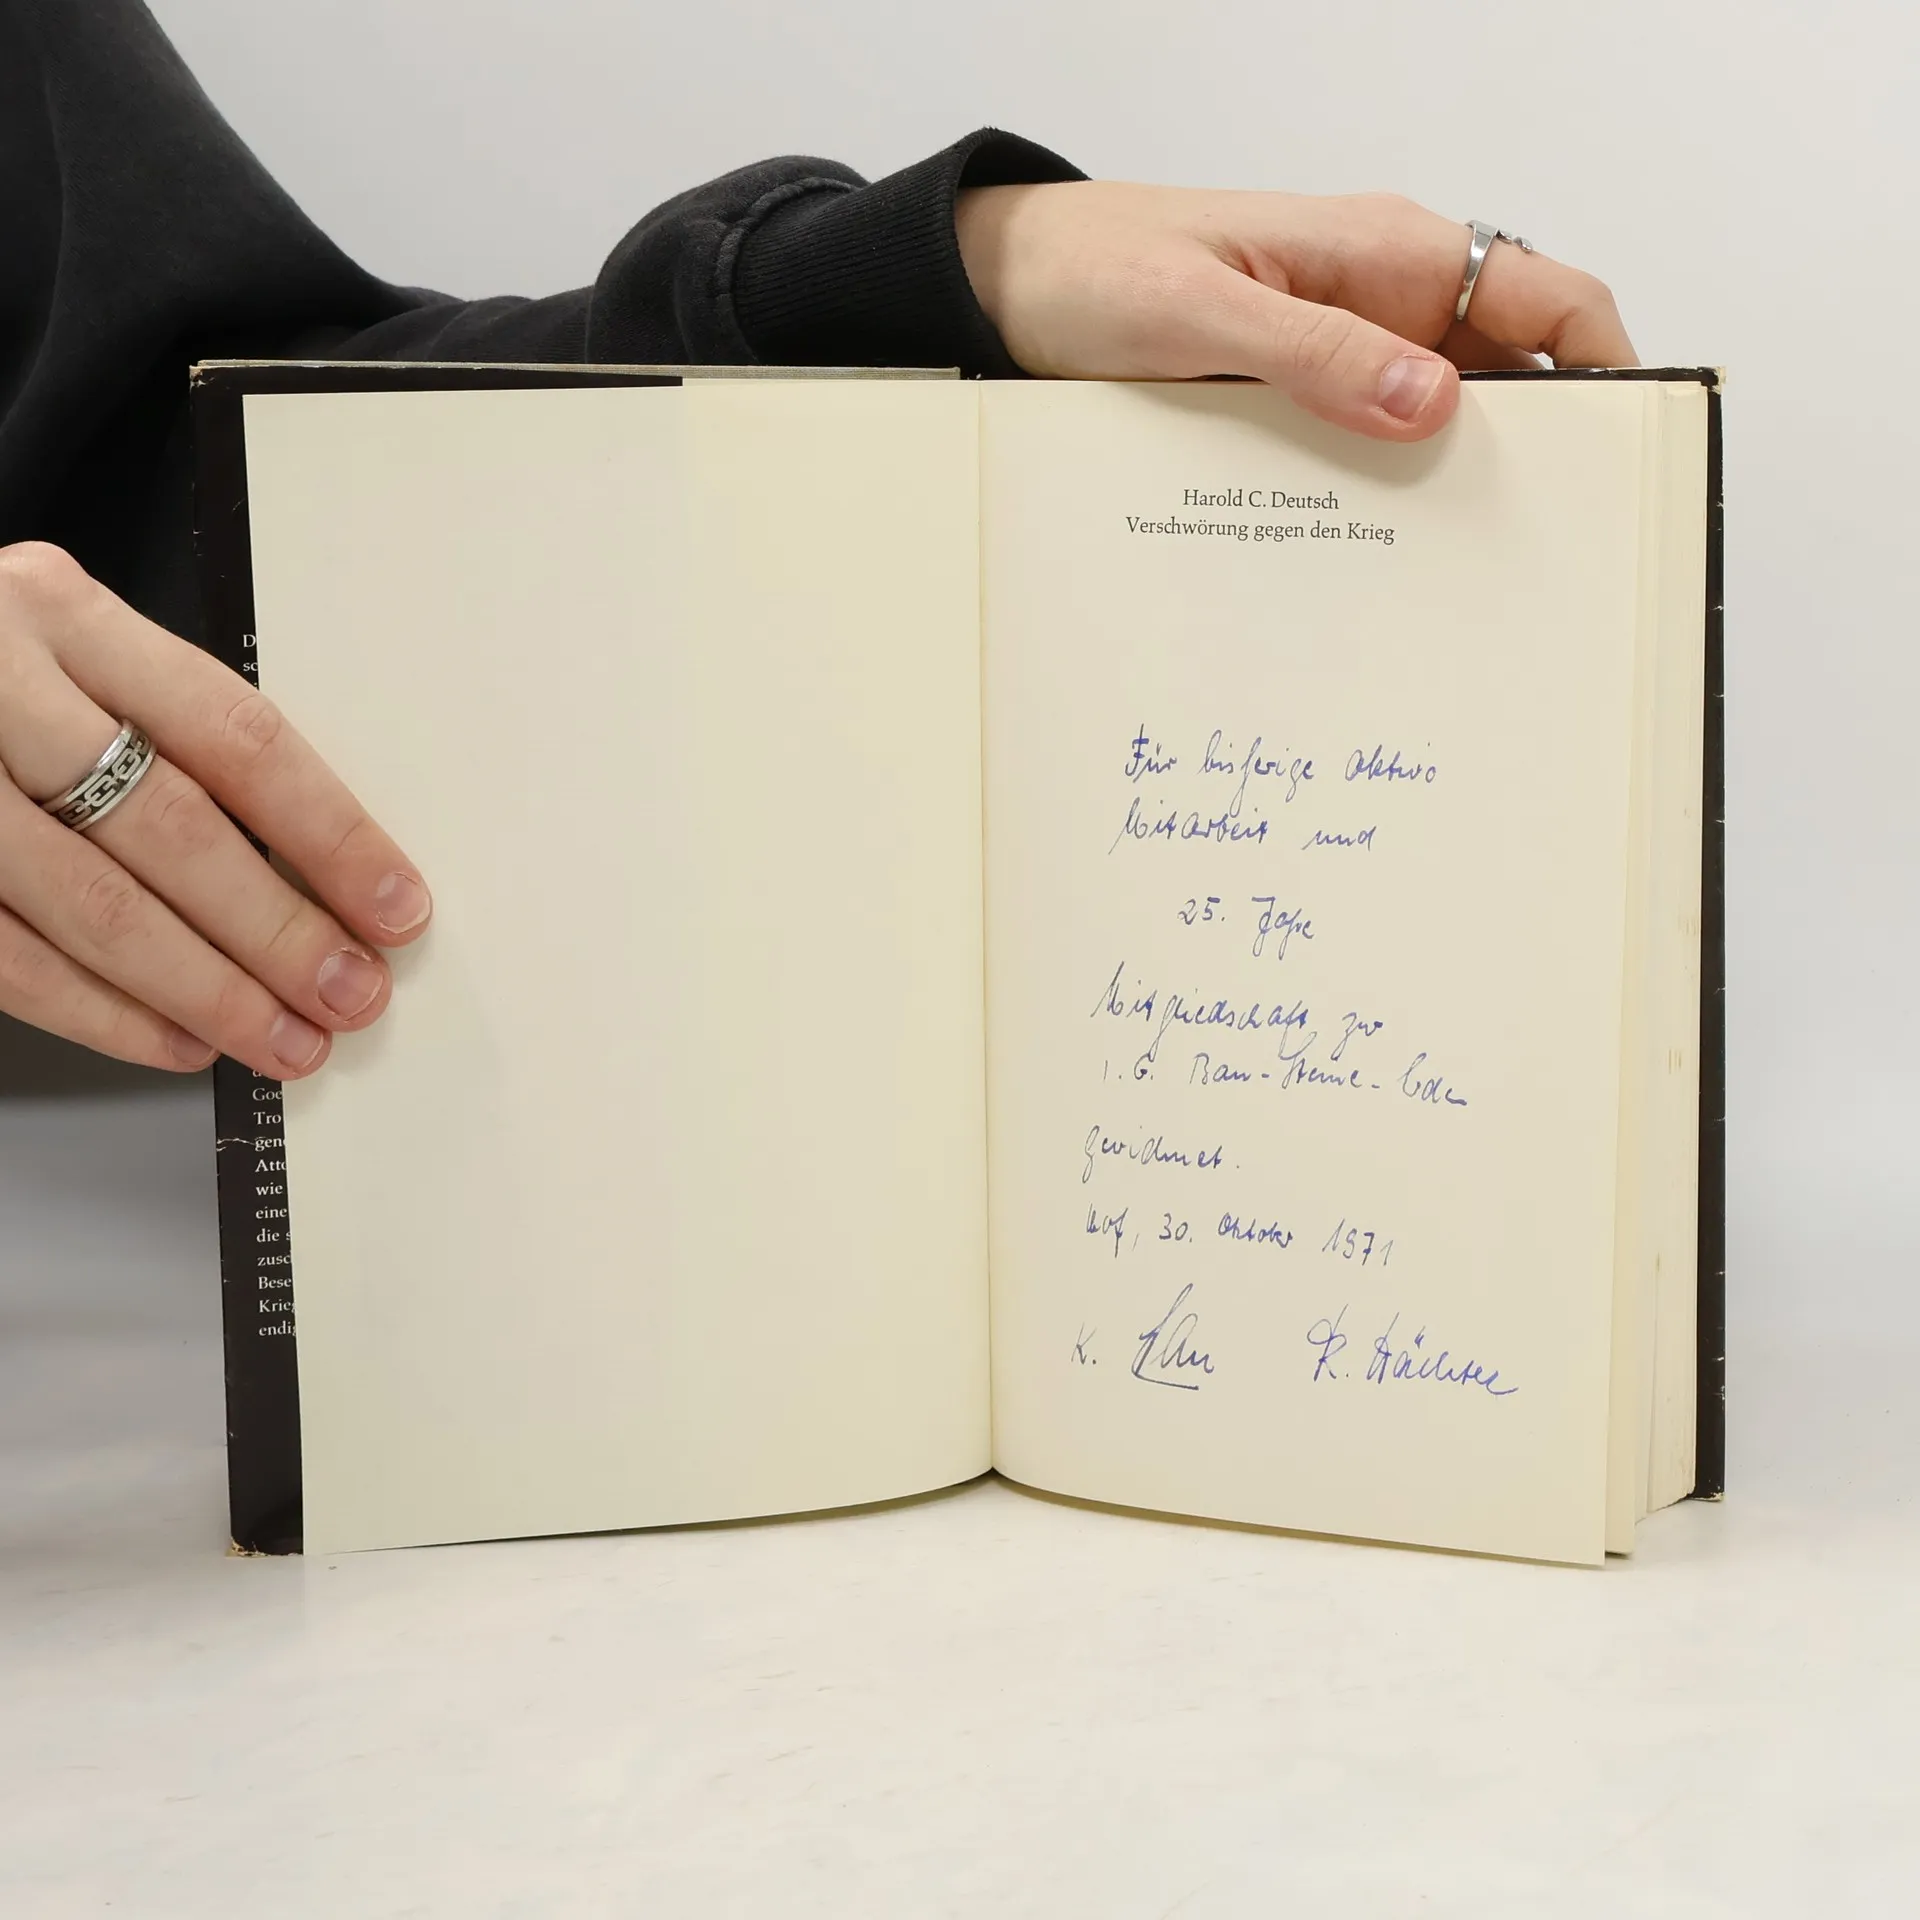 D
sc
Goe
Tro
gene
Atte
wie
eine
die s
zusc
Bese
Krieg
endig
Harold C. Deutsch
Verschwörung gegen den Krieg
Für bisherige aktive
Mitarbeit und
25. Jahre
Mitgliedschaft zur
I. G. Bau-Steine-Erden
gewidmet.
Hof, 30. Oktober 1971
K.
R. Wächter